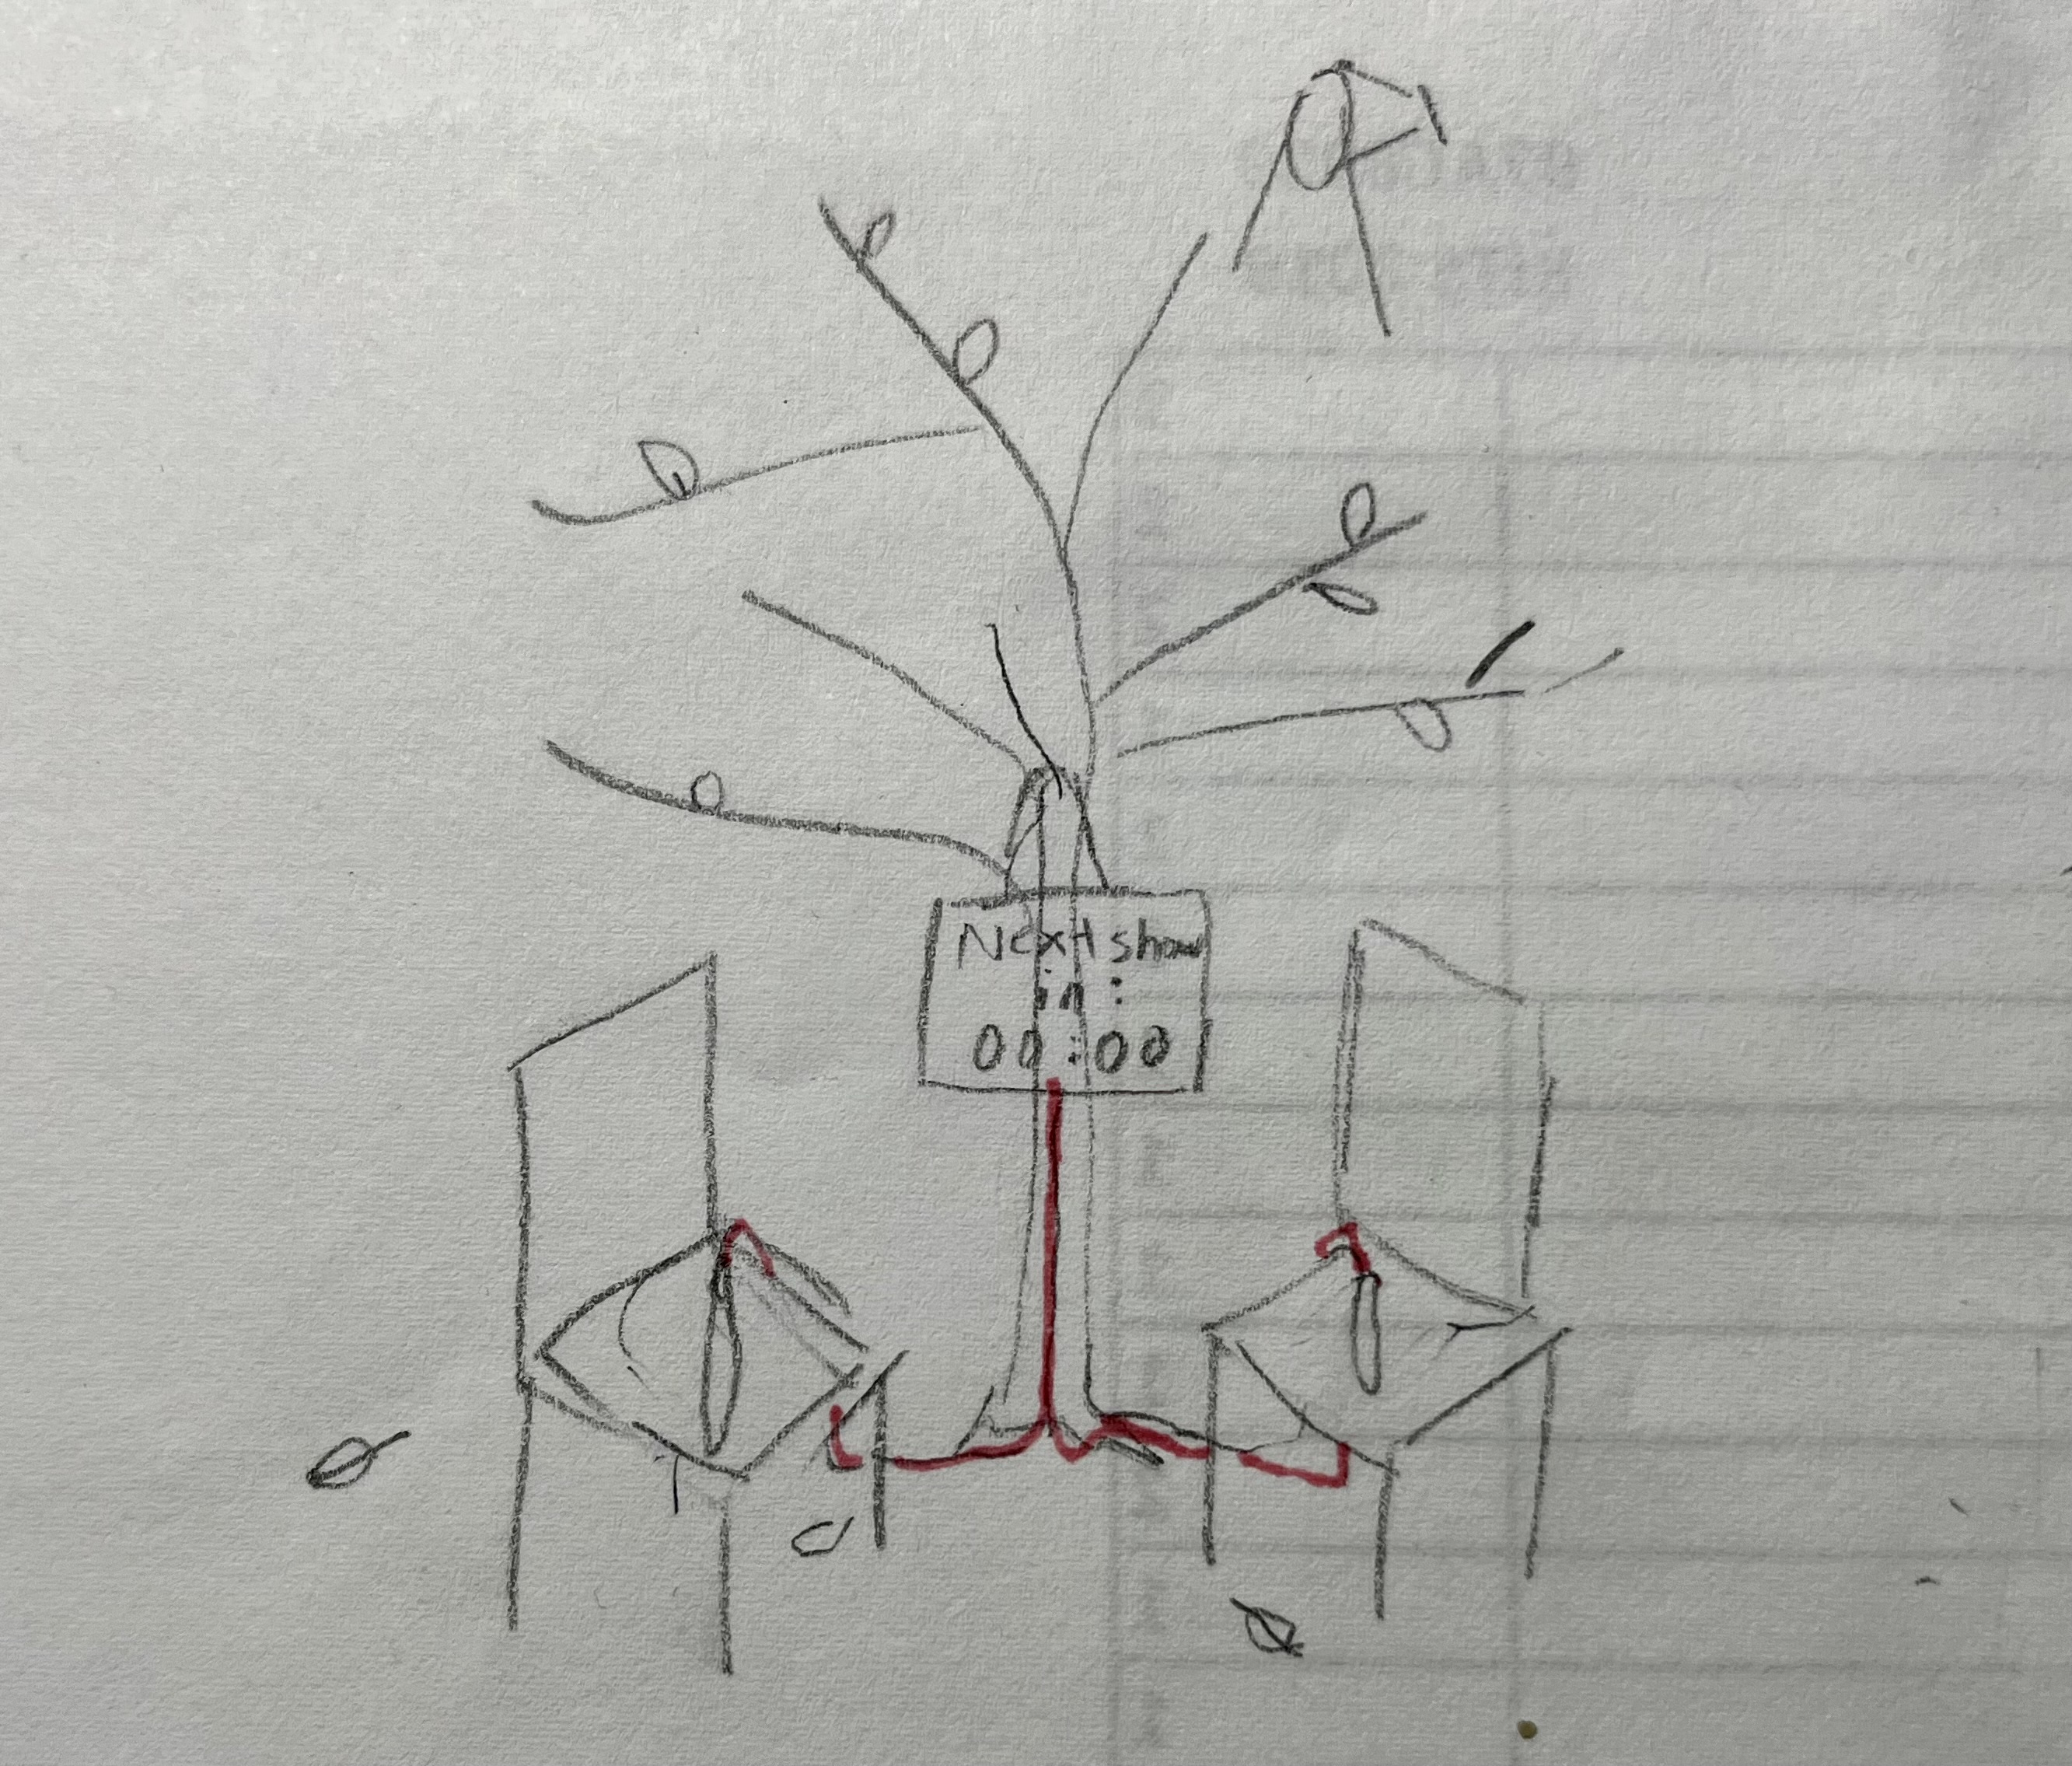 Next show
in:
00:00